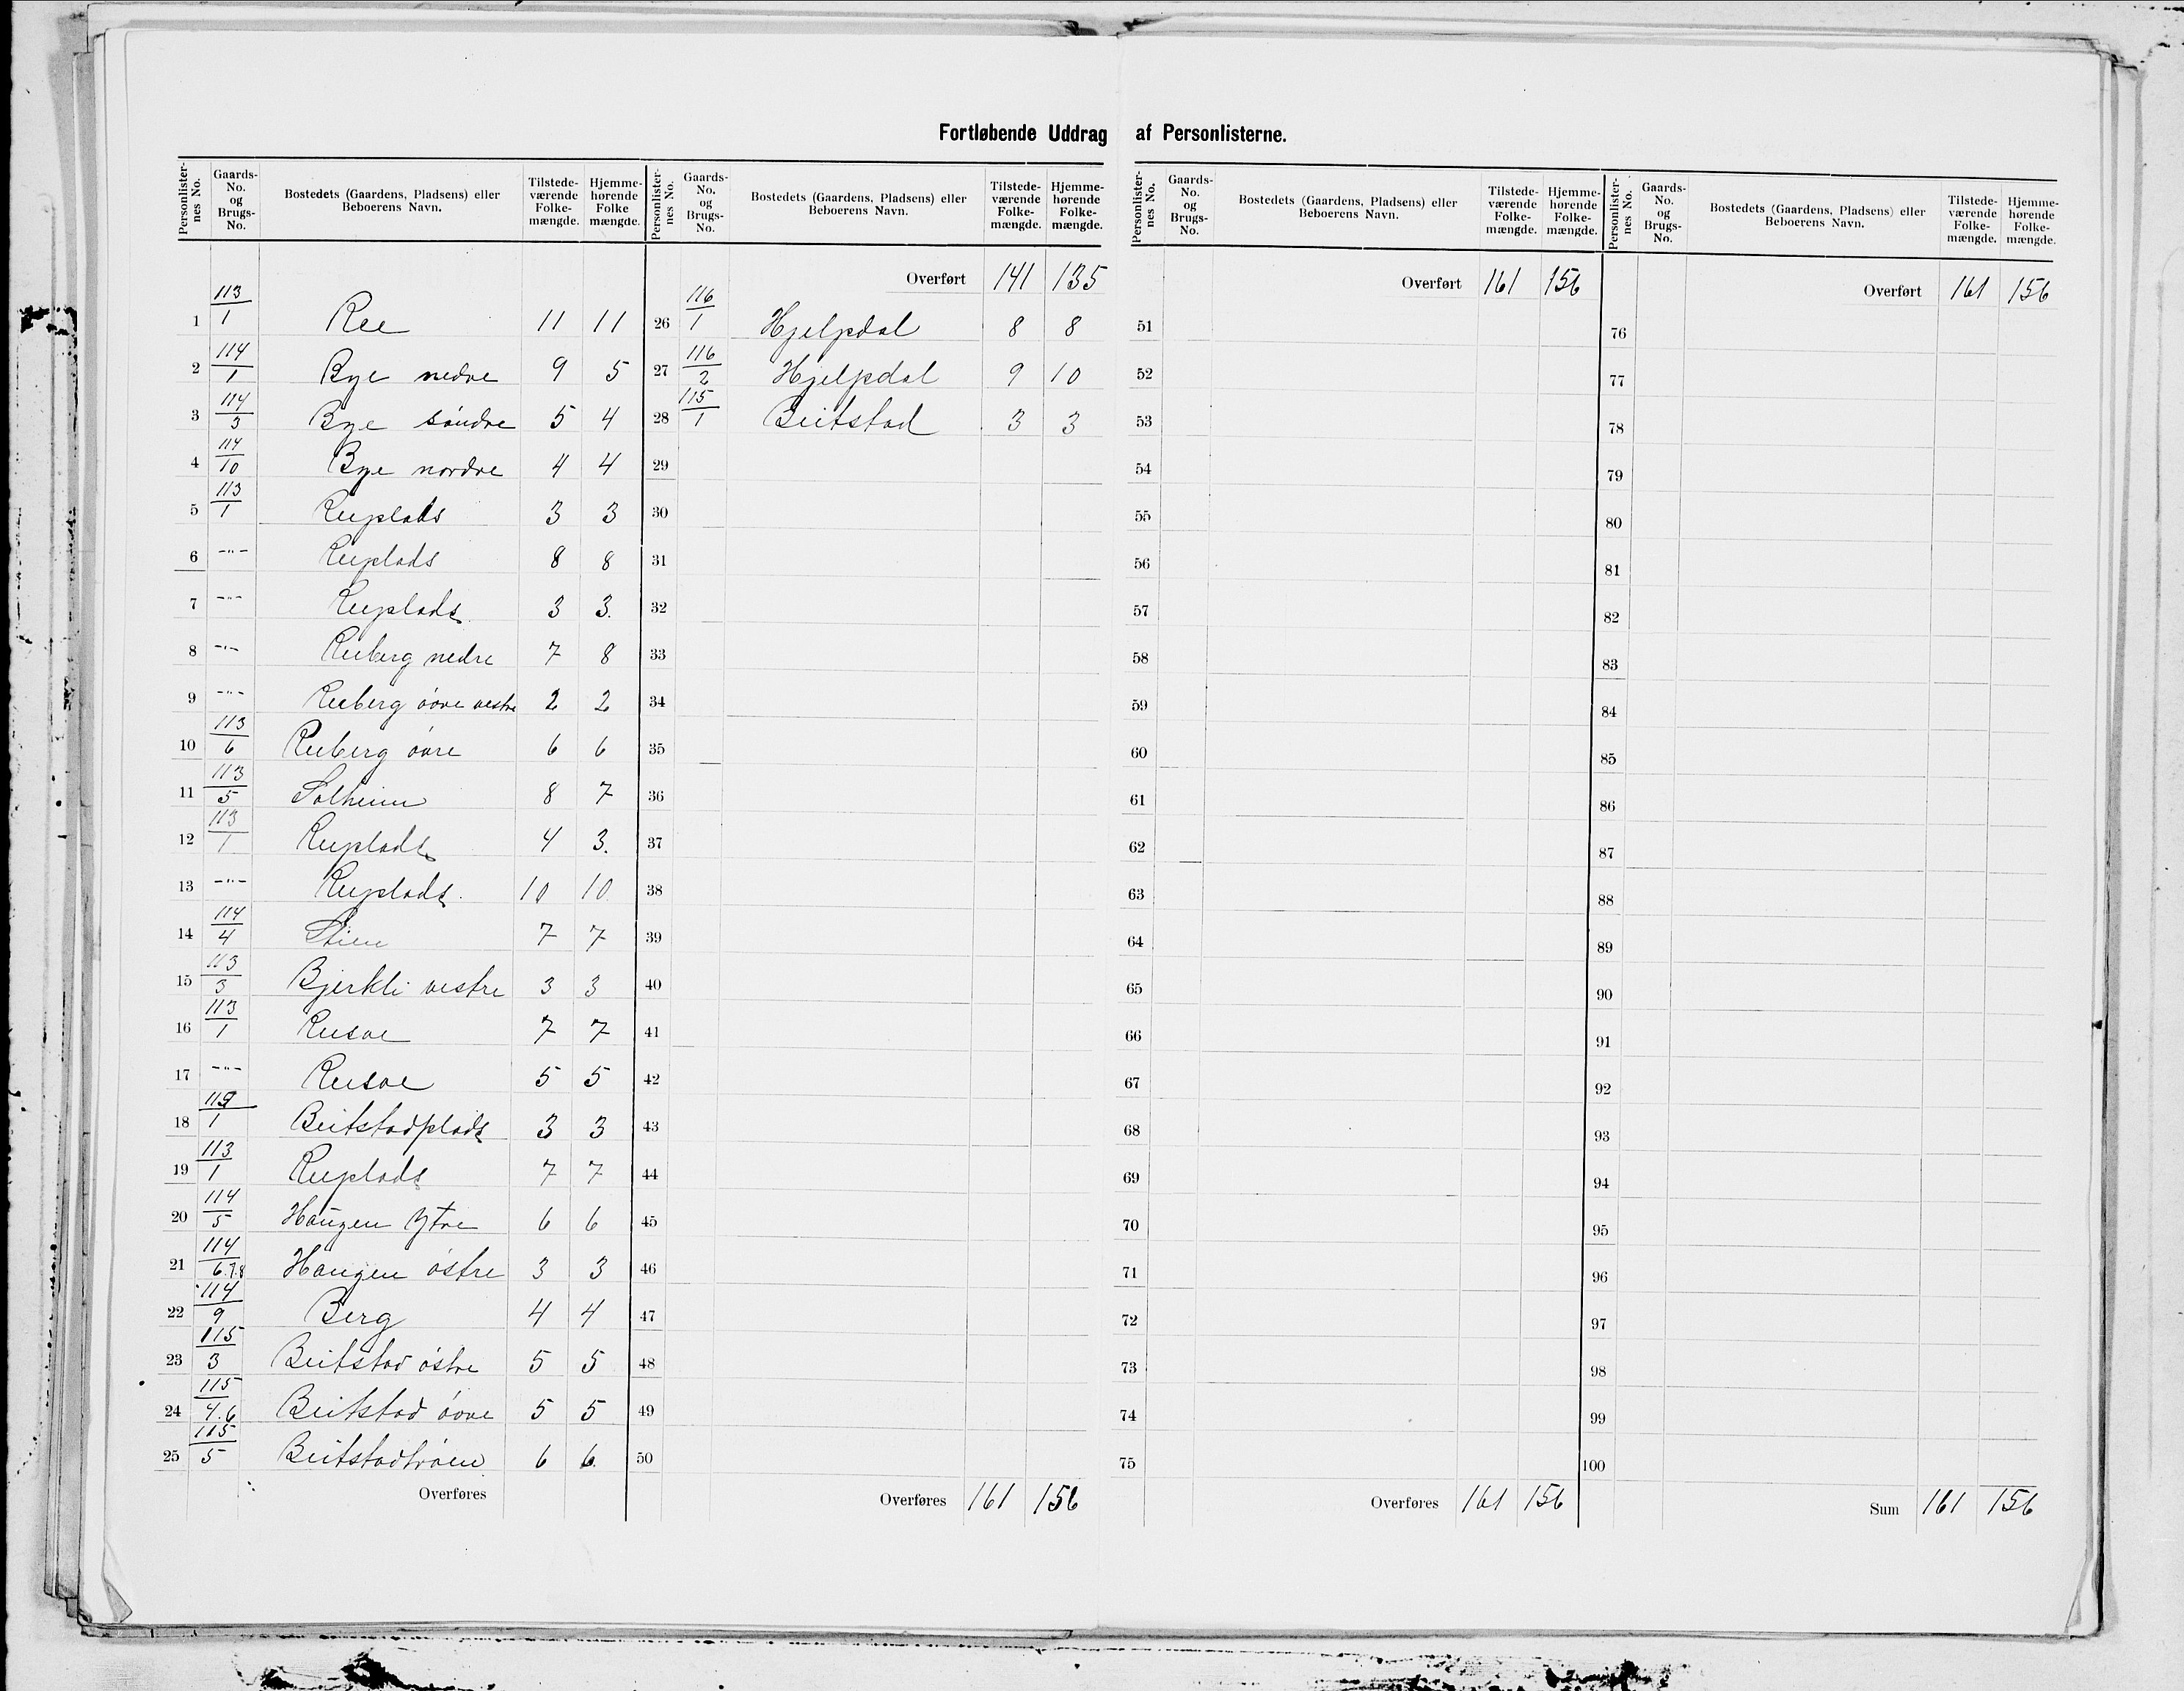 Fortløbende Uddrag af Personlisterne.
Personlister-nes No. | Gaards-No. og Brugs-No. | Bostedets (Gaardens, Pladsens) eller Beboerens Navn. | Tilstede-værende Folke-mængde. | Hjemme-hørende Folke mængde.
1 113/1 Ree 11 11
2 114/1 Bye nedre 9 5
3 114/3 Bye söndre 5 4
4 114/10 Bye nordre 4 4
5 113/1 Reeplads 3 3
6 -"- Reeplads 8 8
7 -"- Reeplads 3 3.
8 -"- Reeberg nedre 7 8
9 -"- Reeberg övre vestre 2 2
10 113/6 Reeberg övre 6 6
11 113/5 Solheim 8 7
12 113/1 Reeplads 4 3.
13 -"- Reeplads. 10 10
14 114/4 Stien 7 7
15 113/3 Bjerkli vestre 3 3
16 113/1 Reesve 7 7
17 -"- Reesve 5 5
18 115/1 Beitstadplads 3 3
19 113/1 Reeplads 7 7
20 114/5 Haugen Ytre 6 6
21 114/6.7.8 Haugen östre 3 3
22 114/9 Berg 4 4
23 115/3 Beitstad östre 5 5
24 115/4.6 Beitstad övre 5 5
25 115/5 Beitstadtröen 6 6.
Overføres
Personlister-nes No. | Gaards-No. og Brugs-No. | Bostedets (Gaardens, Pladsens) eller Beboerens Navn. | Tilstede-værende Folke-mængde. | Hjemme-hørende Folke-mængde.
Overført 141 135
26 116/1 Hjelpdal 8 8
27 116/2 Hjelpdal 9 10
28 115/1 Beitstad 3 3
29
30
31
32
33
34
35
36
37
38
39
40
41
42
43
44
45
46
47
48
49
50
Overføres 161 156
Personlister-nes No. | Gaards-No. og Brugs-No. | Bostedets (Gaardens, Pladsens) eller Beboerens Navn. | Tilstede-værende Folke-mængde. | Hjemme-hørende Folke-mængde.
Overført 161 156
51
52
53
54
55
56
57
58
59
60
61
62
63
64
65
66
67
68
69
70
71
72
73
74
75
Overføres 161 156
Personlister-nes No. | Gaards-No. og Brugs-No. | Bostedets (Gaardens, Pladsens) eller Beboerens Navn. | Tilstede-værende Folke-mængde. | Hjemme-hørende Folke-mængde.
Overført 161 156
76
77
78
79
80
81
82
83
84
85
86
87
88
89
90
91
92
93
94
95
96
97
98
99
100
Sum 161 156